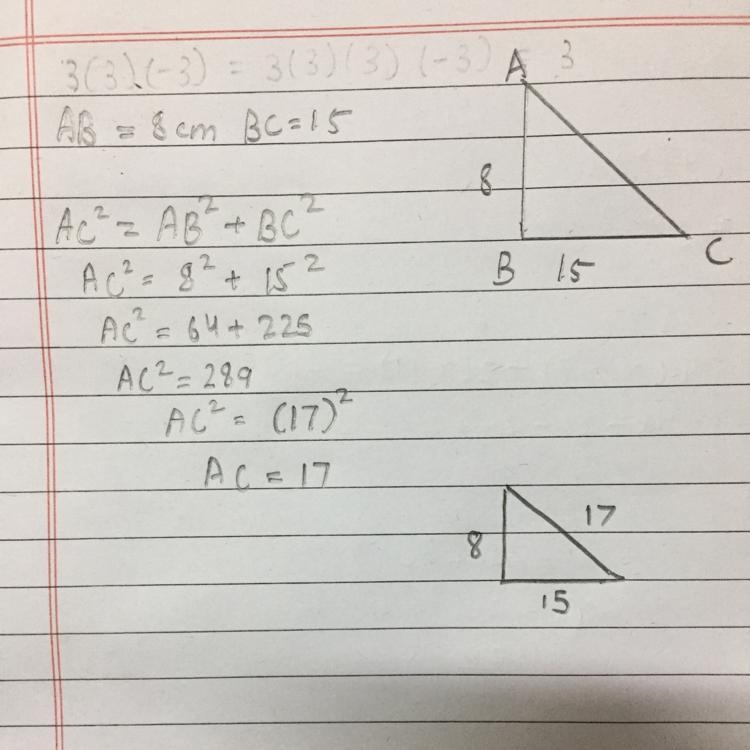 3(3)(-3) = 3(3)(3)(-3) 3
A
AB = 8cm BC=15
8
AC² = AB² + BC²
B 15 C
AC² = 8² + 15²
AC² = 64 + 225
AC² = 289
AC² = (17)²
AC = 17
17
8
15